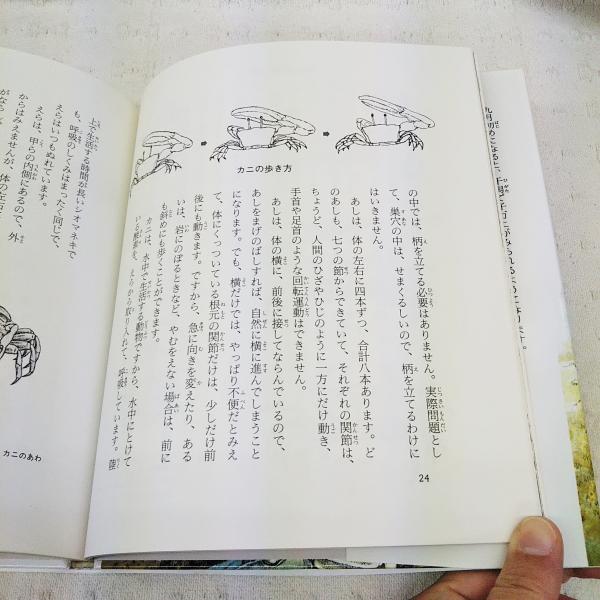 の中では、柄を立てる必要はありません。実際問題とし
て、巣穴の中は、せまくるしいので、柄を立てるわけに
はいきません。
あしは、体の左右に四本ずつ、合計八本あります。ど
のあしも、七つの節からできていて、それぞれの関節は、
ちょうど、人間のひざやひじのように一方にだけ動き、
手首や足首のような回転運動はできません。
あしは、体の横に、前後に接してならんでいるので、
あしをまげのばしすれば、自然に横に進んでしまうこと
になります。でも、横だけでは、やっぱり不便だとみえ
て、体にくっついている根元の関節だけは、少しだけ前
後にも動きます。ですから、急に向きを変えたり、ある
いは、岩にのぼるときなど、やむをえない場合は、前に
も斜めにも歩くことができます。
カニは、水中で生活する動物ですから、水中にとけて
えらから取り入れて、呼吸しています。陸
カニの歩き方
24
上で生活する時間が長いシオマネキで
も、呼吸のしくみはまったく同じで、
えらはいつもぬれています。
えらは、甲らの内側にあるので、外
からはみえませんが、体の左右
カニのあわ